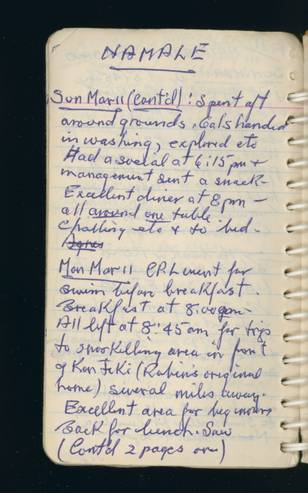 NAMALE
Sun Mar 11 (Cont'd): Spent aft
around grounds. Gals handed
in washing, explored etc
Had a social at 6:15 pm +
management sent a snack-
Excellent diner at 8pm -
all around one table
Chatting etc + to bed-
Mon Mar 11 CPL went for
swim before breakfast.
Breakfast at 8.00
All left at 8:45 am for trips
to snorkelling area in front
of Kon Tiki (Robin's original
home) several miles away.
Excellent area for beginners
Back for lunch. Saw
(Cont'd 2 pages on)